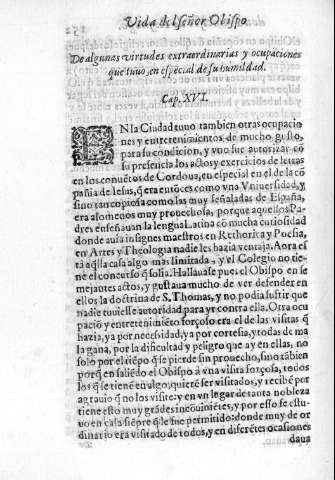 Vida del señor Obispo
De algunas virtudes extraordinarias y ocupaciones
que tuuo, en especial de su humildad.
Cap. XVI.
EN la Ciudad tuuo tambien otras ocupacio
nes y entretenimientos de mucho gusto,
para su condicion, y vno fue autorizar cõ
su presencia los actos y exercicios de letras
en los conuẽtos de Cordoua, en especial en el de la cõ
pañia de Iesus, q̃ era entõces como vna Vniuersidad, y
sino tan copiosa como las muy señaladas de España,
era a lo menos muy prouechosa, porque aquellos Pa-
dres enseñauan la lengua Latina cõ mucha curiosidad
donde auia insignes maestros en Rethorica y Poesia,
en Artes y Theologia nadie les hazia ventaja. Aora es
tà aq̃lla casa algo mas limitada, y el Colegio no tie-
ne el concurso q̃ solia. Hallauase pues el Obispo en se
mejantes actos, y gustaua mucho de ver defender en
ellos la doctrina de S. Thomas, y no podia sufrir que
nadie tuuiesse autoridad para yr contra ella. Otra ocu
paciõ y entretenimiẽto forçoso era el de las visitas q̃
hazia, ya por necessidad, ya por cortesia, y todas de ma
la gana, por la dificultad y peligro que ay en ellas, no
solo por el tiẽpo q̃ se pierde sin prouecho, sino tãbien
porq̃ en saliẽdo el Obispo à vna visita forçosa, todos
los q̃ se tienẽ en algo, quierẽ ser visitados, y recibẽ por
agrauio q̃ no los visite: y en vn lugar de tanta nobleza
tiene esto muy grãdes incõuiniẽtes, y por esso se estu-
uo en casa siẽpre q̃ le fue permitido: donde muy de or
dinario era visitado de todos, y en diferẽtes ocasiones
daua